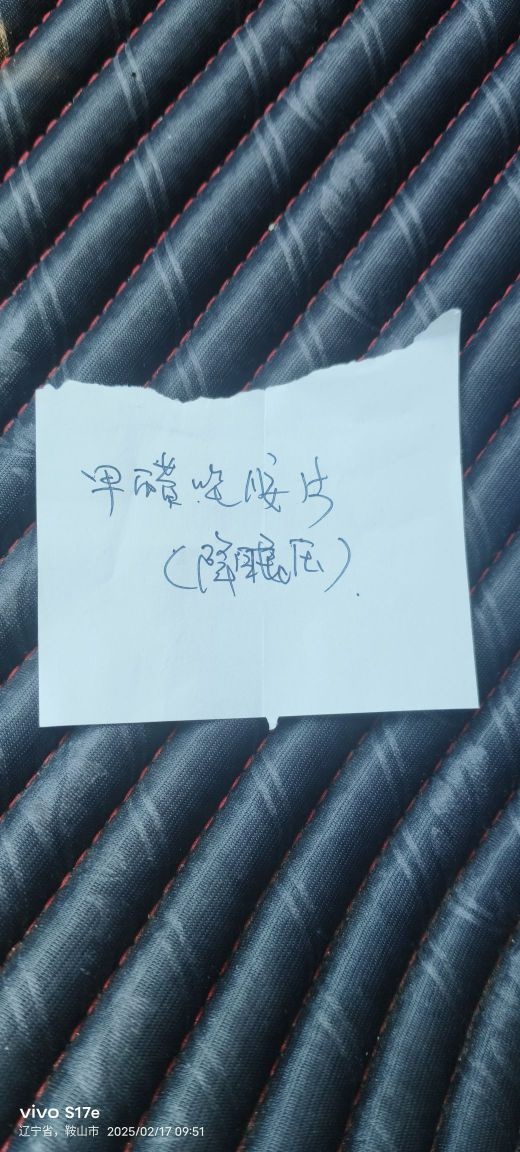 甲磺唑胺片
(降眼压).
vivo S17e
辽宁省，鞍山市 2025/02/17 09:51